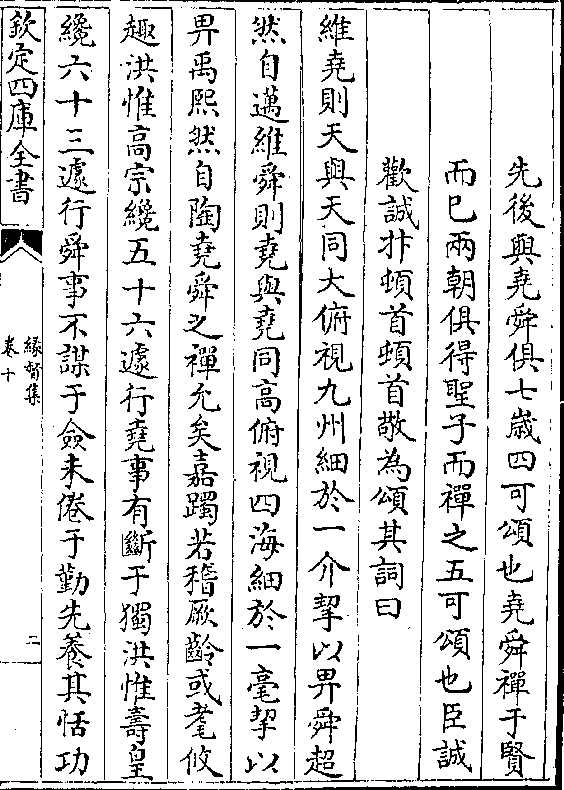 先後與堯舜俱七歲四可頌也堯舜禪于賢
而已兩朝俱得聖子而禪之五可頌也臣誠
歡誠抃頓首頓首敬為頌其詞曰
維堯則天與天同大俯視九州細於一介挈以畀舜超
然自邁維舜則堯與堯同高俯視四海細於一毫挈以
畀禹熙然自陶堯舜之禪允矣嘉躅若稽厥齡或耄攸
趣洪惟高宗纔五十六遽行堯事有斷于獨洪惟壽皇
纔六十三遽行舜事不謀于僉未倦于勤先養其恬功
欽定四庫全書
緣督集
卷十
二